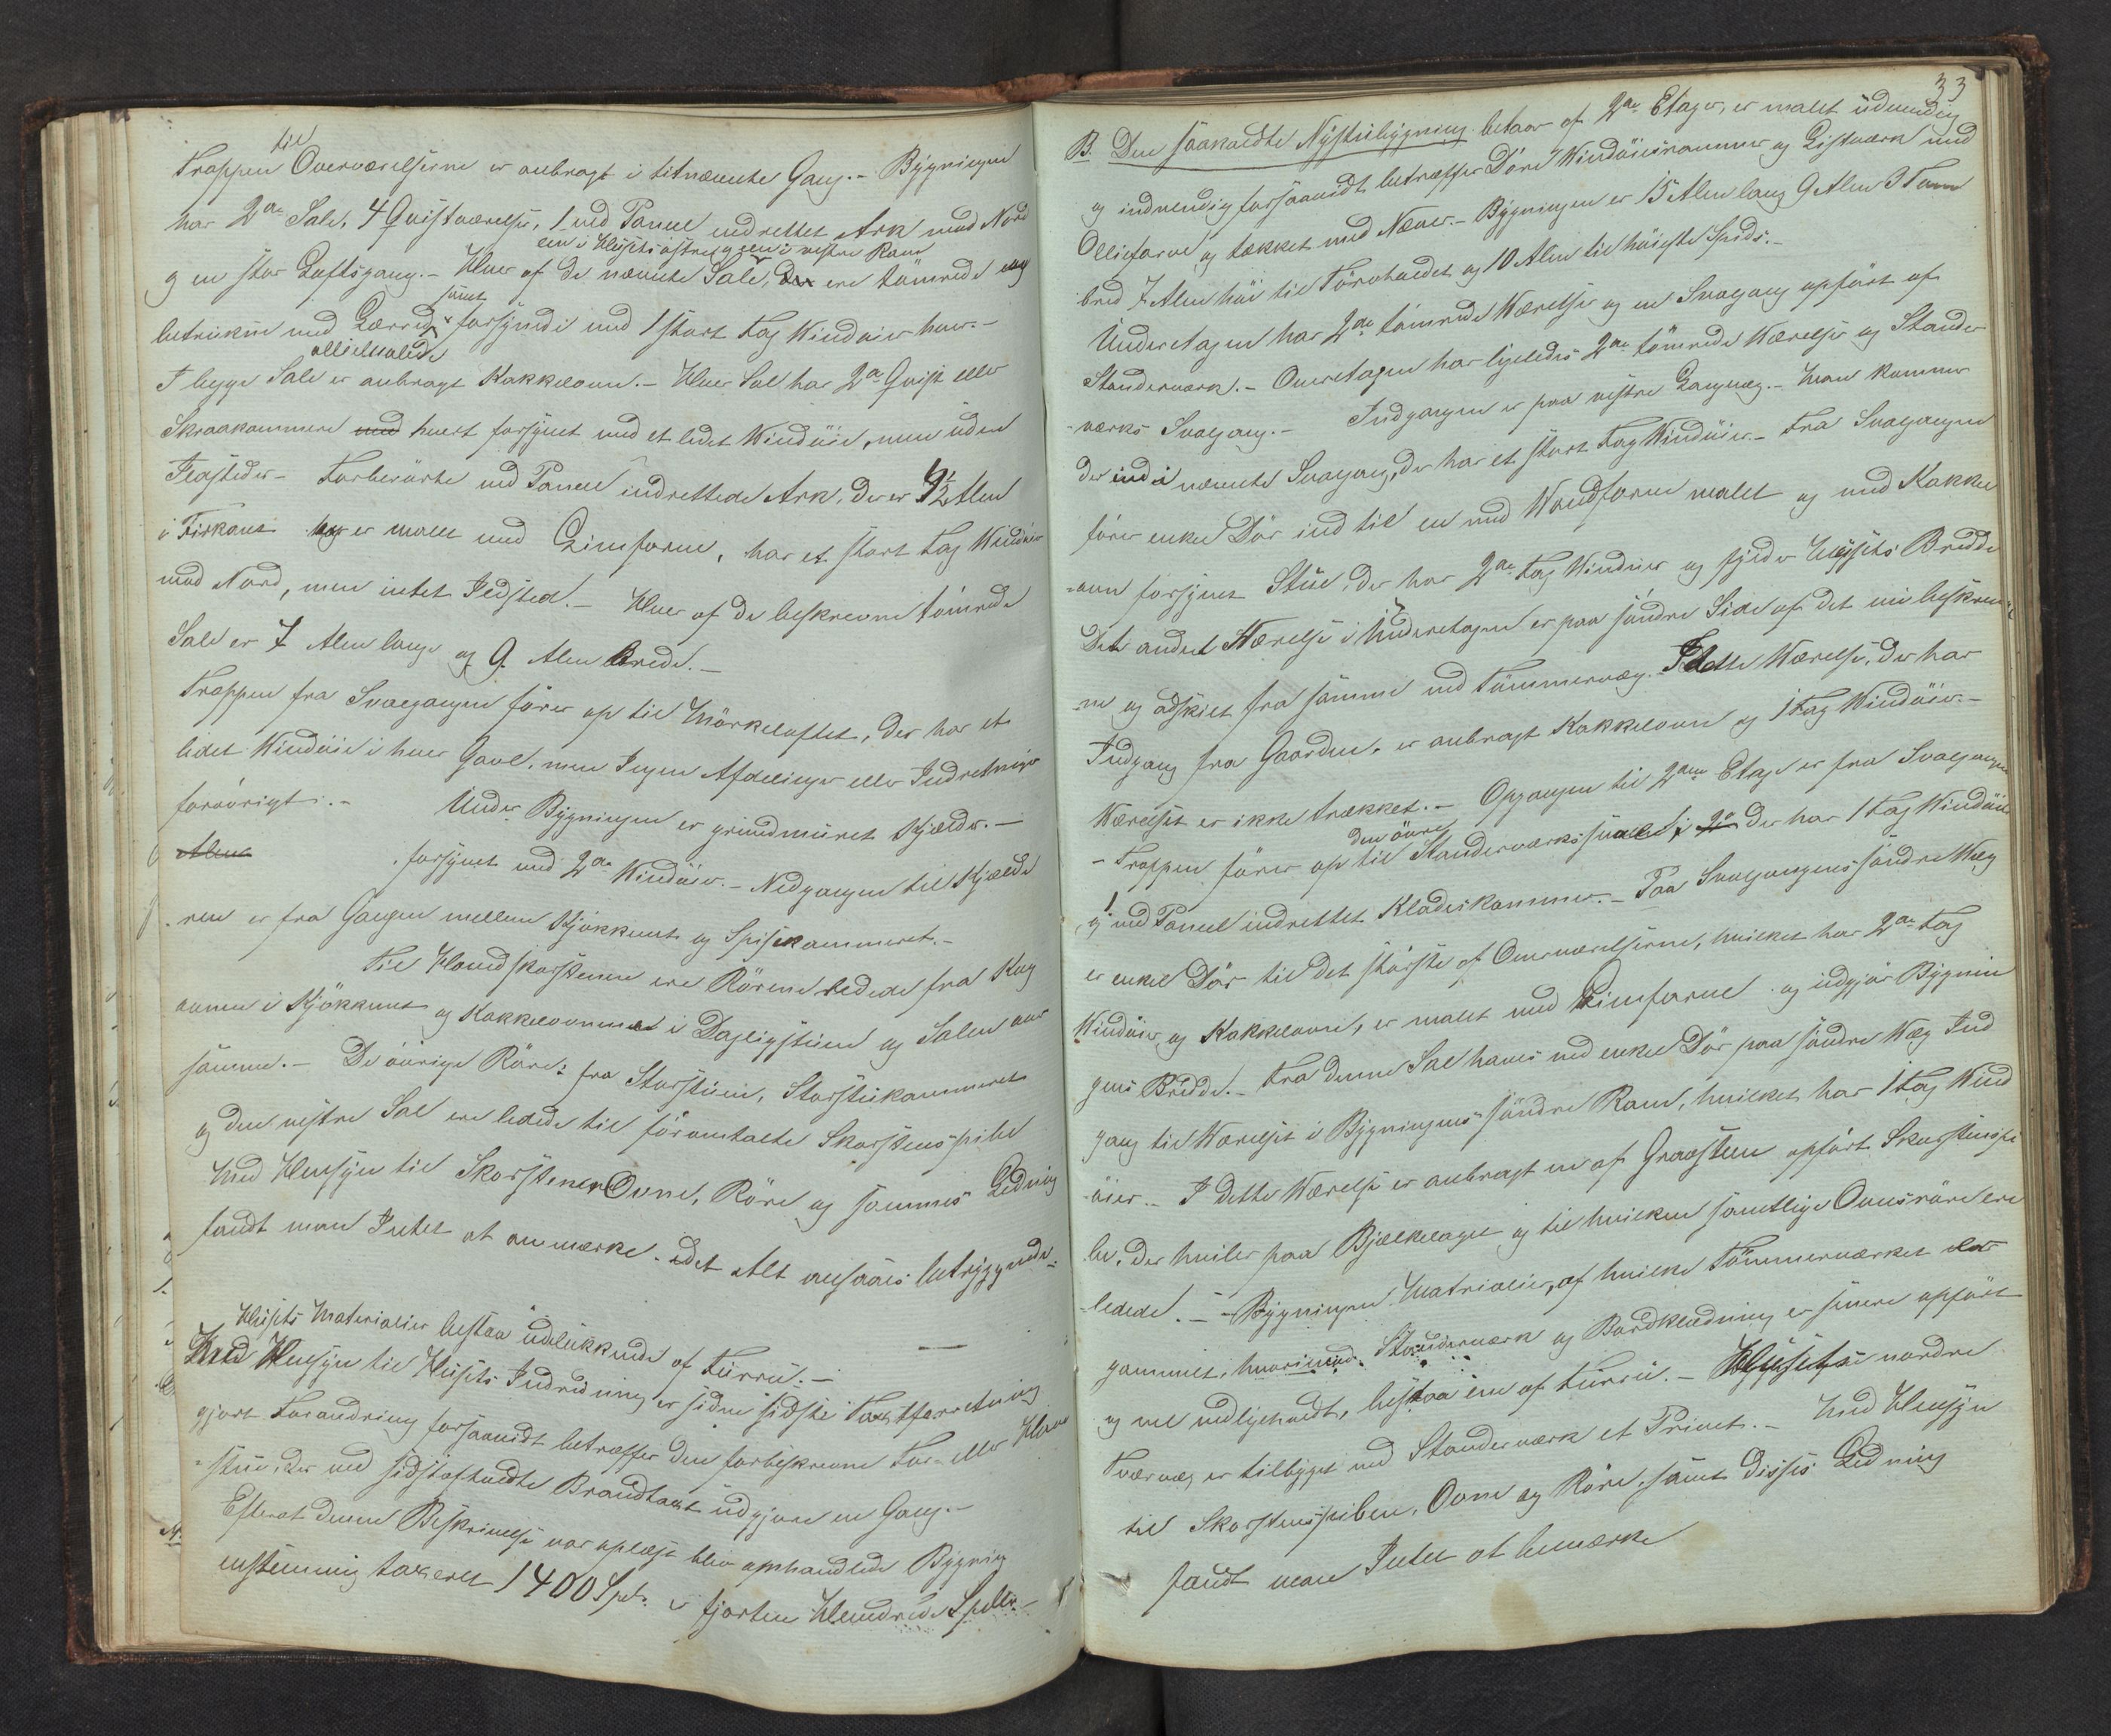 til
Trappen Oververelserne er anbragt i titnævnte Gang.- Bygningen
har 2de Sale, 4 Qvistværelser, 1 med Paneel indrettet Ark mod Nord
een i Husets østre og een i vestre Rum
og en stor Loftsgang.- Hver af de nævnte Sale, der ere tømrede og
samt
betrukne med Lærred, forsynede med 1 stort Fag Vinduer hver.-
olliemalede
I begge Sale er anbragt Kakkelovn.- Hver Sal har 2de Qvist eller
Skraakammere med hvert forsynet med et lidet Vindue, men uden
Ildsteder.- Forberørte med Paneel indrettede Ark, der er 4½ Alen
i Firkant og er malet med Limfarve, har et stort Fag Vinduer
mod Nord, men intet Ildsted.- Hver af de beskrevne tømrede
Sale er 7 Alen lange og 9 Alen brede.-
Trappen fra Svalgangen fører op til Mørkeloftet, der har et
lidet Vindue i hver Gavl, men Ingen Afdelinger eller Indretninger
forøvrigt.- Under Bygningen er grundmuret Kjælder.-
Alen forsynet med 2de Vinduer.- Nedgangen til Kjælde
ren er fra Gangen mellem Kjøkkenet og Spisekammeret.-
Til Hovedskorstenen ere Rørene ledede fra Kog
ovnen i Kjøkkenet og Kakkelovnene i Dagligstuen og Salen over
samme.- De øvrige Røre: fra Storstuen, Storstukammeret
og den vestre Sal ere ledede til foromtalte Skorstenspibe
Med Hensyn til Skorstenene, Ovne, Røre og sammes Ledning
fandt man Intet at anmærke, idet Alt ansaaes betryggende.-
Husets Materialier bestaa udelukkende af Furru.-
Med Hensyn til Husets Indredning er siden sidste Taxtforretning
gjort Forandring forsaavidt betræffer den forbeskrevne For- eller
stue, der ved sidstafholdte Brandtaxt udgjorde en Gang.-
Efterat denne Beskrivelse var oplæst blev omhandlede Bygning
enstemmig taxeret 1400 Spd. er fjorten Hundrede Spdlr.-
33
B. Den saakaldte Nystubygning bestaar af 2de Etager, er malet udvendig
og indvendig forsaavidt betræffer Døre Vinduesrammer og Listværk med
Olliefarve og tækket med Næver.- Bygningen er 15 Alen lang 9 Alen 3 Tom
bred 7 Alen høi til Tørvholdet og 10 Alen til høieste Spids.-
Underetagen har 2de tømrede Værelser og en Svalgang opført af
Standerværk.- Overetagen har ligeledes 2de tømrede Værelser og Stander
-værks Svalgang.- Indgangen er paa vestre Langvæg.- Man kommer
der ind i nævnte Svalgang, der har et stort Fag Vinduer.- Fra Svalgangen
fører enkel Dør ind til en med Vandfarve malet og med Kakkel
-ovn forsynet Stue, der har 2de Fag Vinduer og fylder Husets Bredde
Det andet Værelse i Underetagen er paa søndre Side af det nu beskrev
-ne og adskilt fra samme ved Tømmervæg.- I dette Værelse, der har
Indgang fra Gaarden, er anbragt Kakkelovn og 1 Fag Vinduer.-
Værelset er ikke trækket.- Opgangen til 2den Etage er fra Svalgangen
den øvre
-Trappen fører op til Standerværkssvalen, der har 1 Fag Vinduer
og 1 med Paneel indrettet Klædeskammer.- Paa Svalgangens søndre Væg
er enkel Dør til det største af Oververelserne, hvilket har 2de Fag
Vinduer og Kakkelovn, er malet med Limfarve og udgjør Bygnin
gens Bredde.- Fra denne Sal haves ved enkel Dør paa søndre Væg Ind
gang til Værelset i Bygningens søndre Rum, hvilket har 1 Fag Vind
-uer.- I dette Værelse er anbragt en af Graasteen opført Skorstenspi
be, der hviler paa Bjælkelaget og til hvilken samtlige Ovnsrøre ere
ledede.- Bygningens Materialier, af hvilke Tømmerværket er
gammelt, hvorimod Standerværk og Bordklædning er senere opført
og vel vedligeholdt, bestaa kun af Furru.- Ved Husets nordre
Tværvæg er tilbygget ved Standerværk et Privet.- Med Hensyn
til Skorstenspiben, Ovne og Røre, samt disses Ledning
fandt man Intet at bemærke